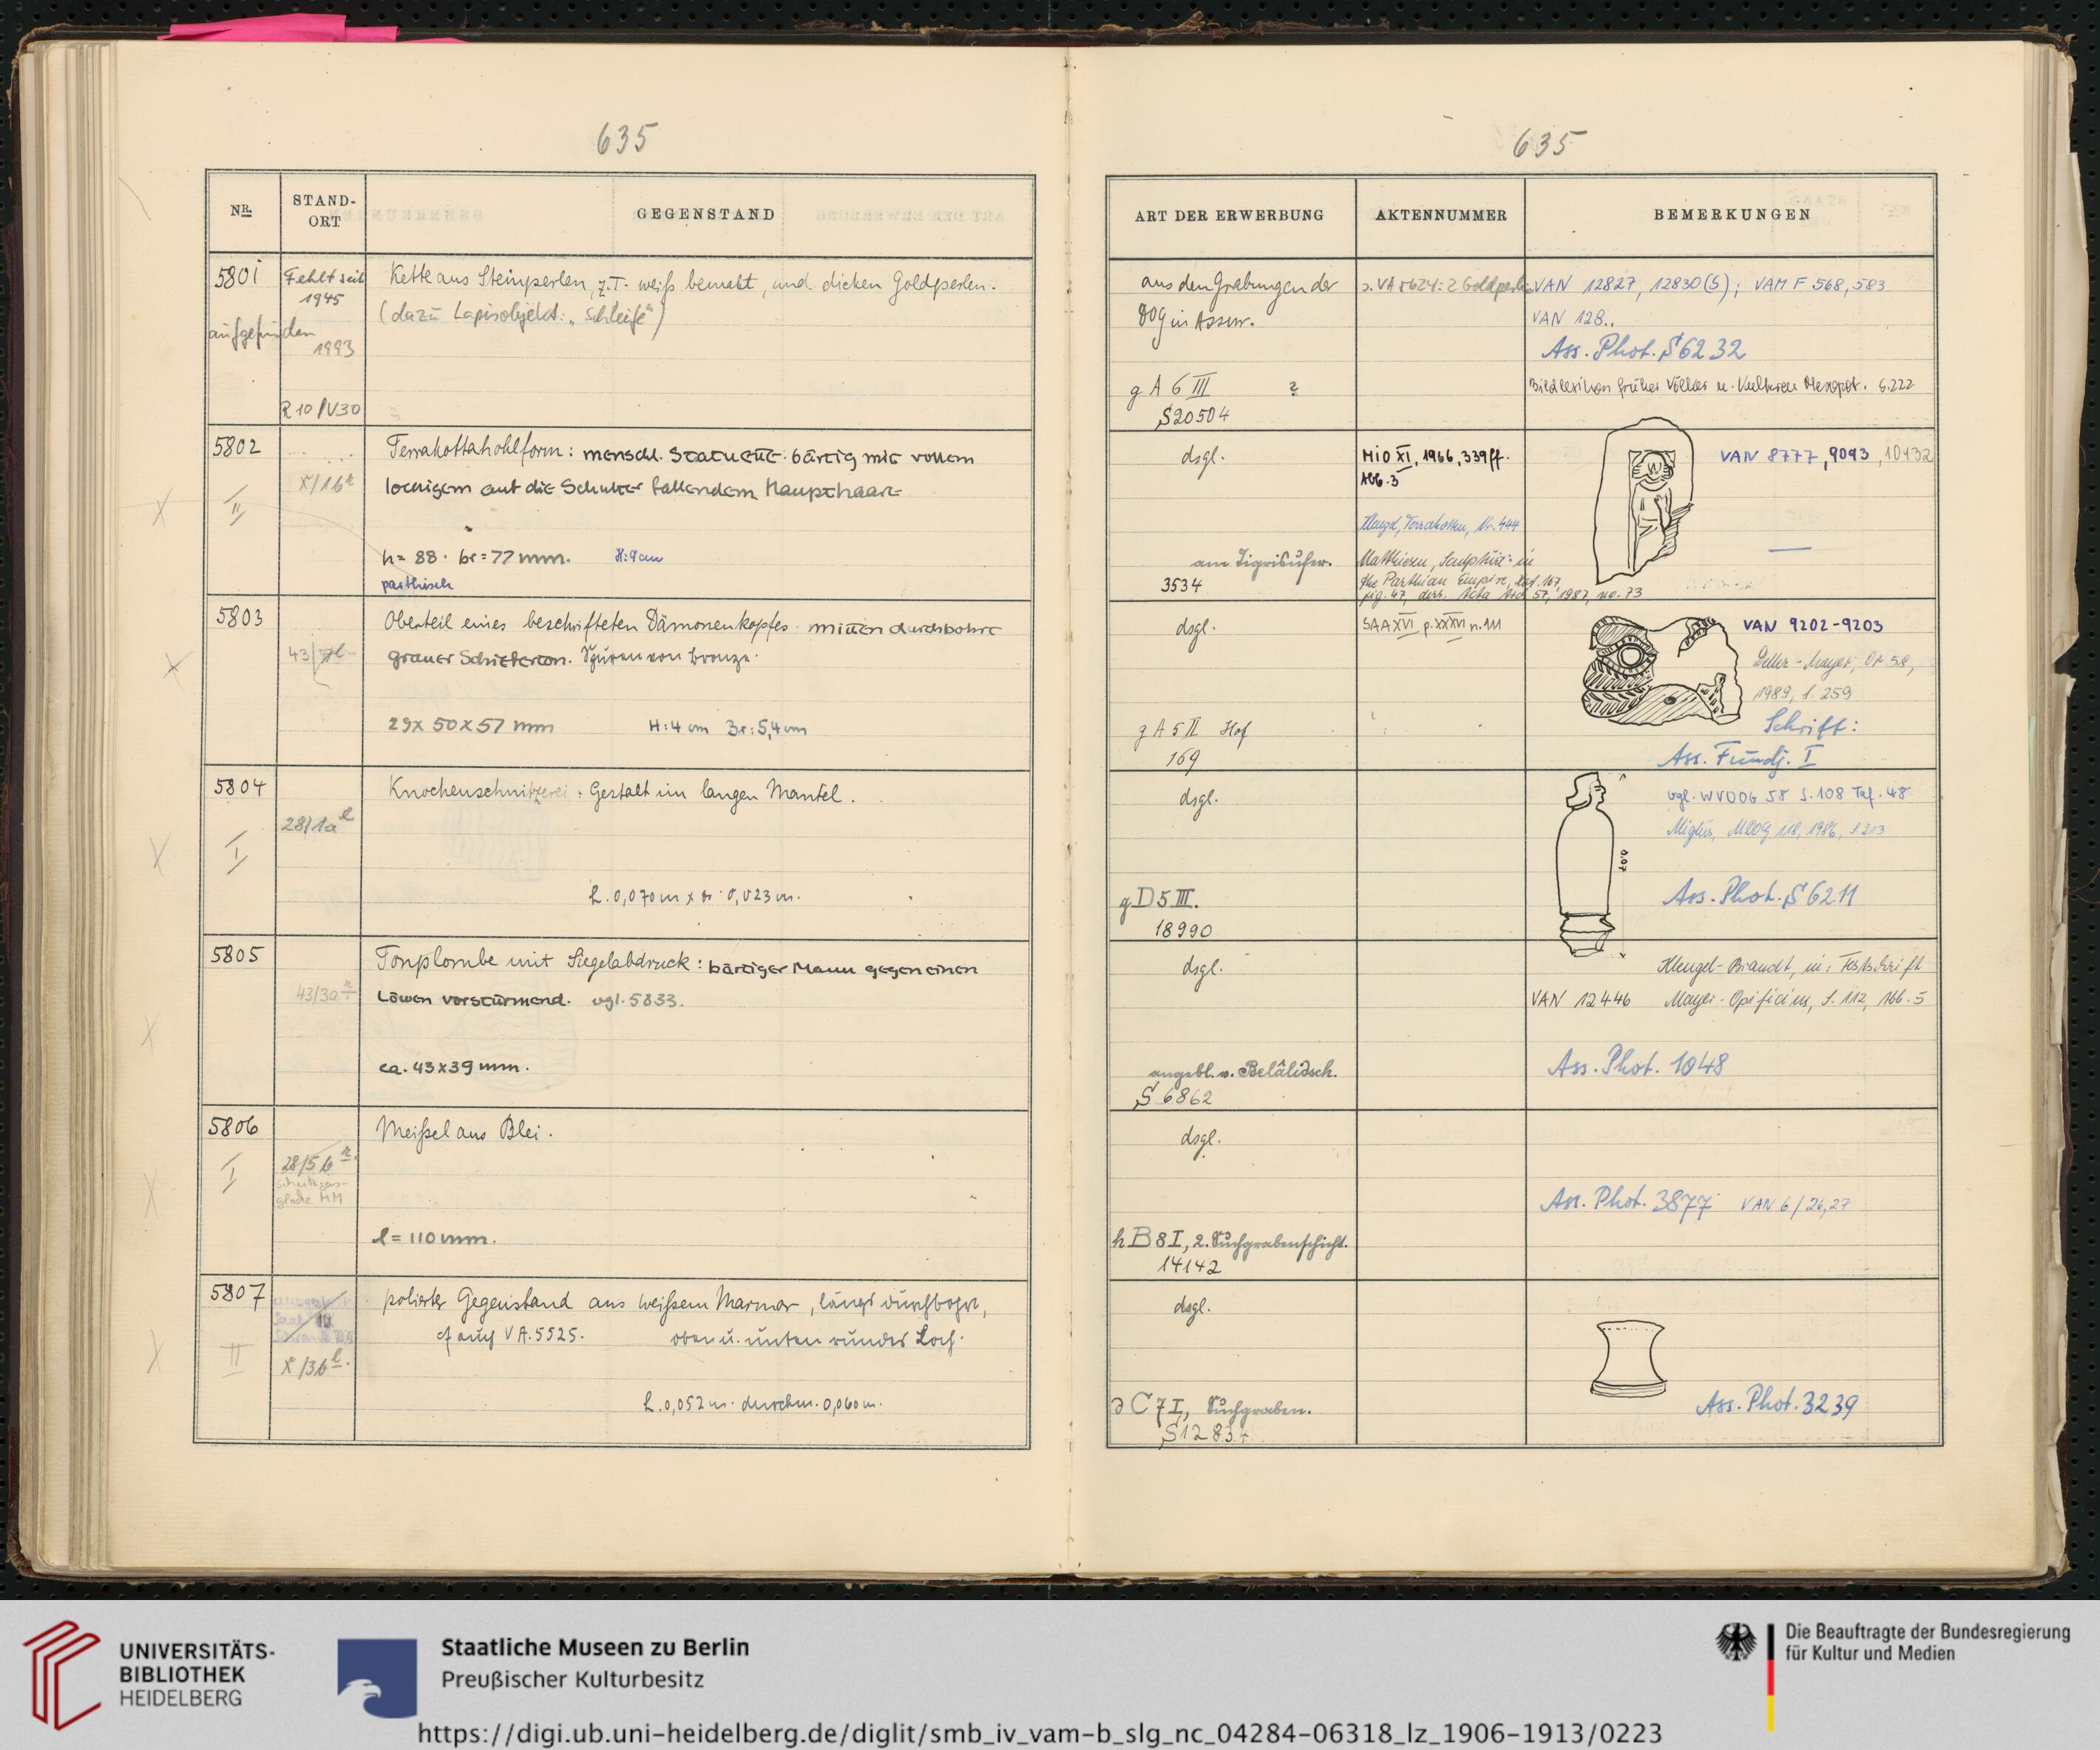 635
NR.
STAND-
ORT
GEGENSTAND
5801
Fehlt seit
1945
aufgefunden
1993
R10/V30
Kette aus Steinperlen, z.T. weiß bemalt, und dicken Goldperlen.
(dazu Lapisobjekt: „Schleife")
5802
II
Terrakottahohlform: menschl. Statuette: bärtig mit vollem
lockigem auf die Schulter fallendem Haupthaar
h = 88. br = 77 mm. H: 9 cm
parthisch
5803
43/
Oberteil eines beschrifteten Dämonenkopfes mitten durchbohrt
grauer Schieferton. Spuren von Bronze.
29 x 50 x 57 mm H: 4 cm Br: 5,4 cm
5804
I
28/1a l
Knochenschnitzerei: Gestalt im langen Mantel.
h. 0,070 m x br 0,023 m.
5805
43/3a r
Tonplombe mit Siegelabdruck: bärtiger Mann gegen einen
Löwen vorstürmend. vgl. 5833.
ca. 43 x 39 mm.
5806
I
28/5b r.
Schutzgas-
glocke MM
Meißel aus Blei.
l = 110 mm.
5807
II
X/3b l.
polierter Gegenstand aus weißem Marmor, längs durchbohrt,
cf auch VA. 5525. oben u. unten rundes Loch.
h. 0,052 m. durchm. 0,060 m.
635
ART DER ERWERBUNG
AKTENNUMMER
BEMERKUNGEN
aus den Grabungen der
DOG in Assur.
g A 6 III ?
S 20504
s. VA 5624: 2 Goldperlen
VAN 12827, 12830 (S); VAM F 568, 583
VAN 128..
Ass. Phot. S 6232
Bildlexikon früher Völker u. Kulturen Mesopot. S. 222
dsgl.
am Tigrisufer.
3534
MIO XI, 1966, 339 ff.
Abb. 5
Klengel, Terrakotten, Nr. 444
Mathiesen, Sculpture in
the Parthian Empire, Kat. 167,
fig. 47, ders. Acta Arch 57, 1987, no. 73
VAN 8777, 9093, 10132
dsgl.
g A 5 II Hof
169
SAA XVI p. XXXVI n. 111
VAN 9202-9203
Deller-Mayer, Or 58,
1989, S. 259
Schrift:
Ass. Fundj. I
dsgl.
g D 5 III.
18990
vgl. WVDOG 58 S. 108 Taf. 48
Miglus, MDOG 118, 1986, S. 213
Ass. Phot. S 6211
dsgl.
angebl. v. Belâlidsch.
S 6862
Klengel-Brandt, in: Festschrift
VAN 12446 Mayer-Opificius, S. 112, Abb. 5
Ass. Phot. 1048
dsgl.
h B 8 I, 2. Suchgrabenschicht.
14142
Ass. Phot. 3877 VAN 6/26,27
dsgl.
d C 7 I, Suchgraben.
Ass. Phot. 3239
UNIVERSITÄTS-
BIBLIOTHEK
HEIDELBERG
Staatliche Museen zu Berlin
Preußischer Kulturbesitz
Die Beauftragte der Bundesregierung
für Kultur und Medien
https://digi.ub.uni-heidelberg.de/diglit/smb_iv_vam-b_slg_nc_04284-06318_lz_1906-1913/0223